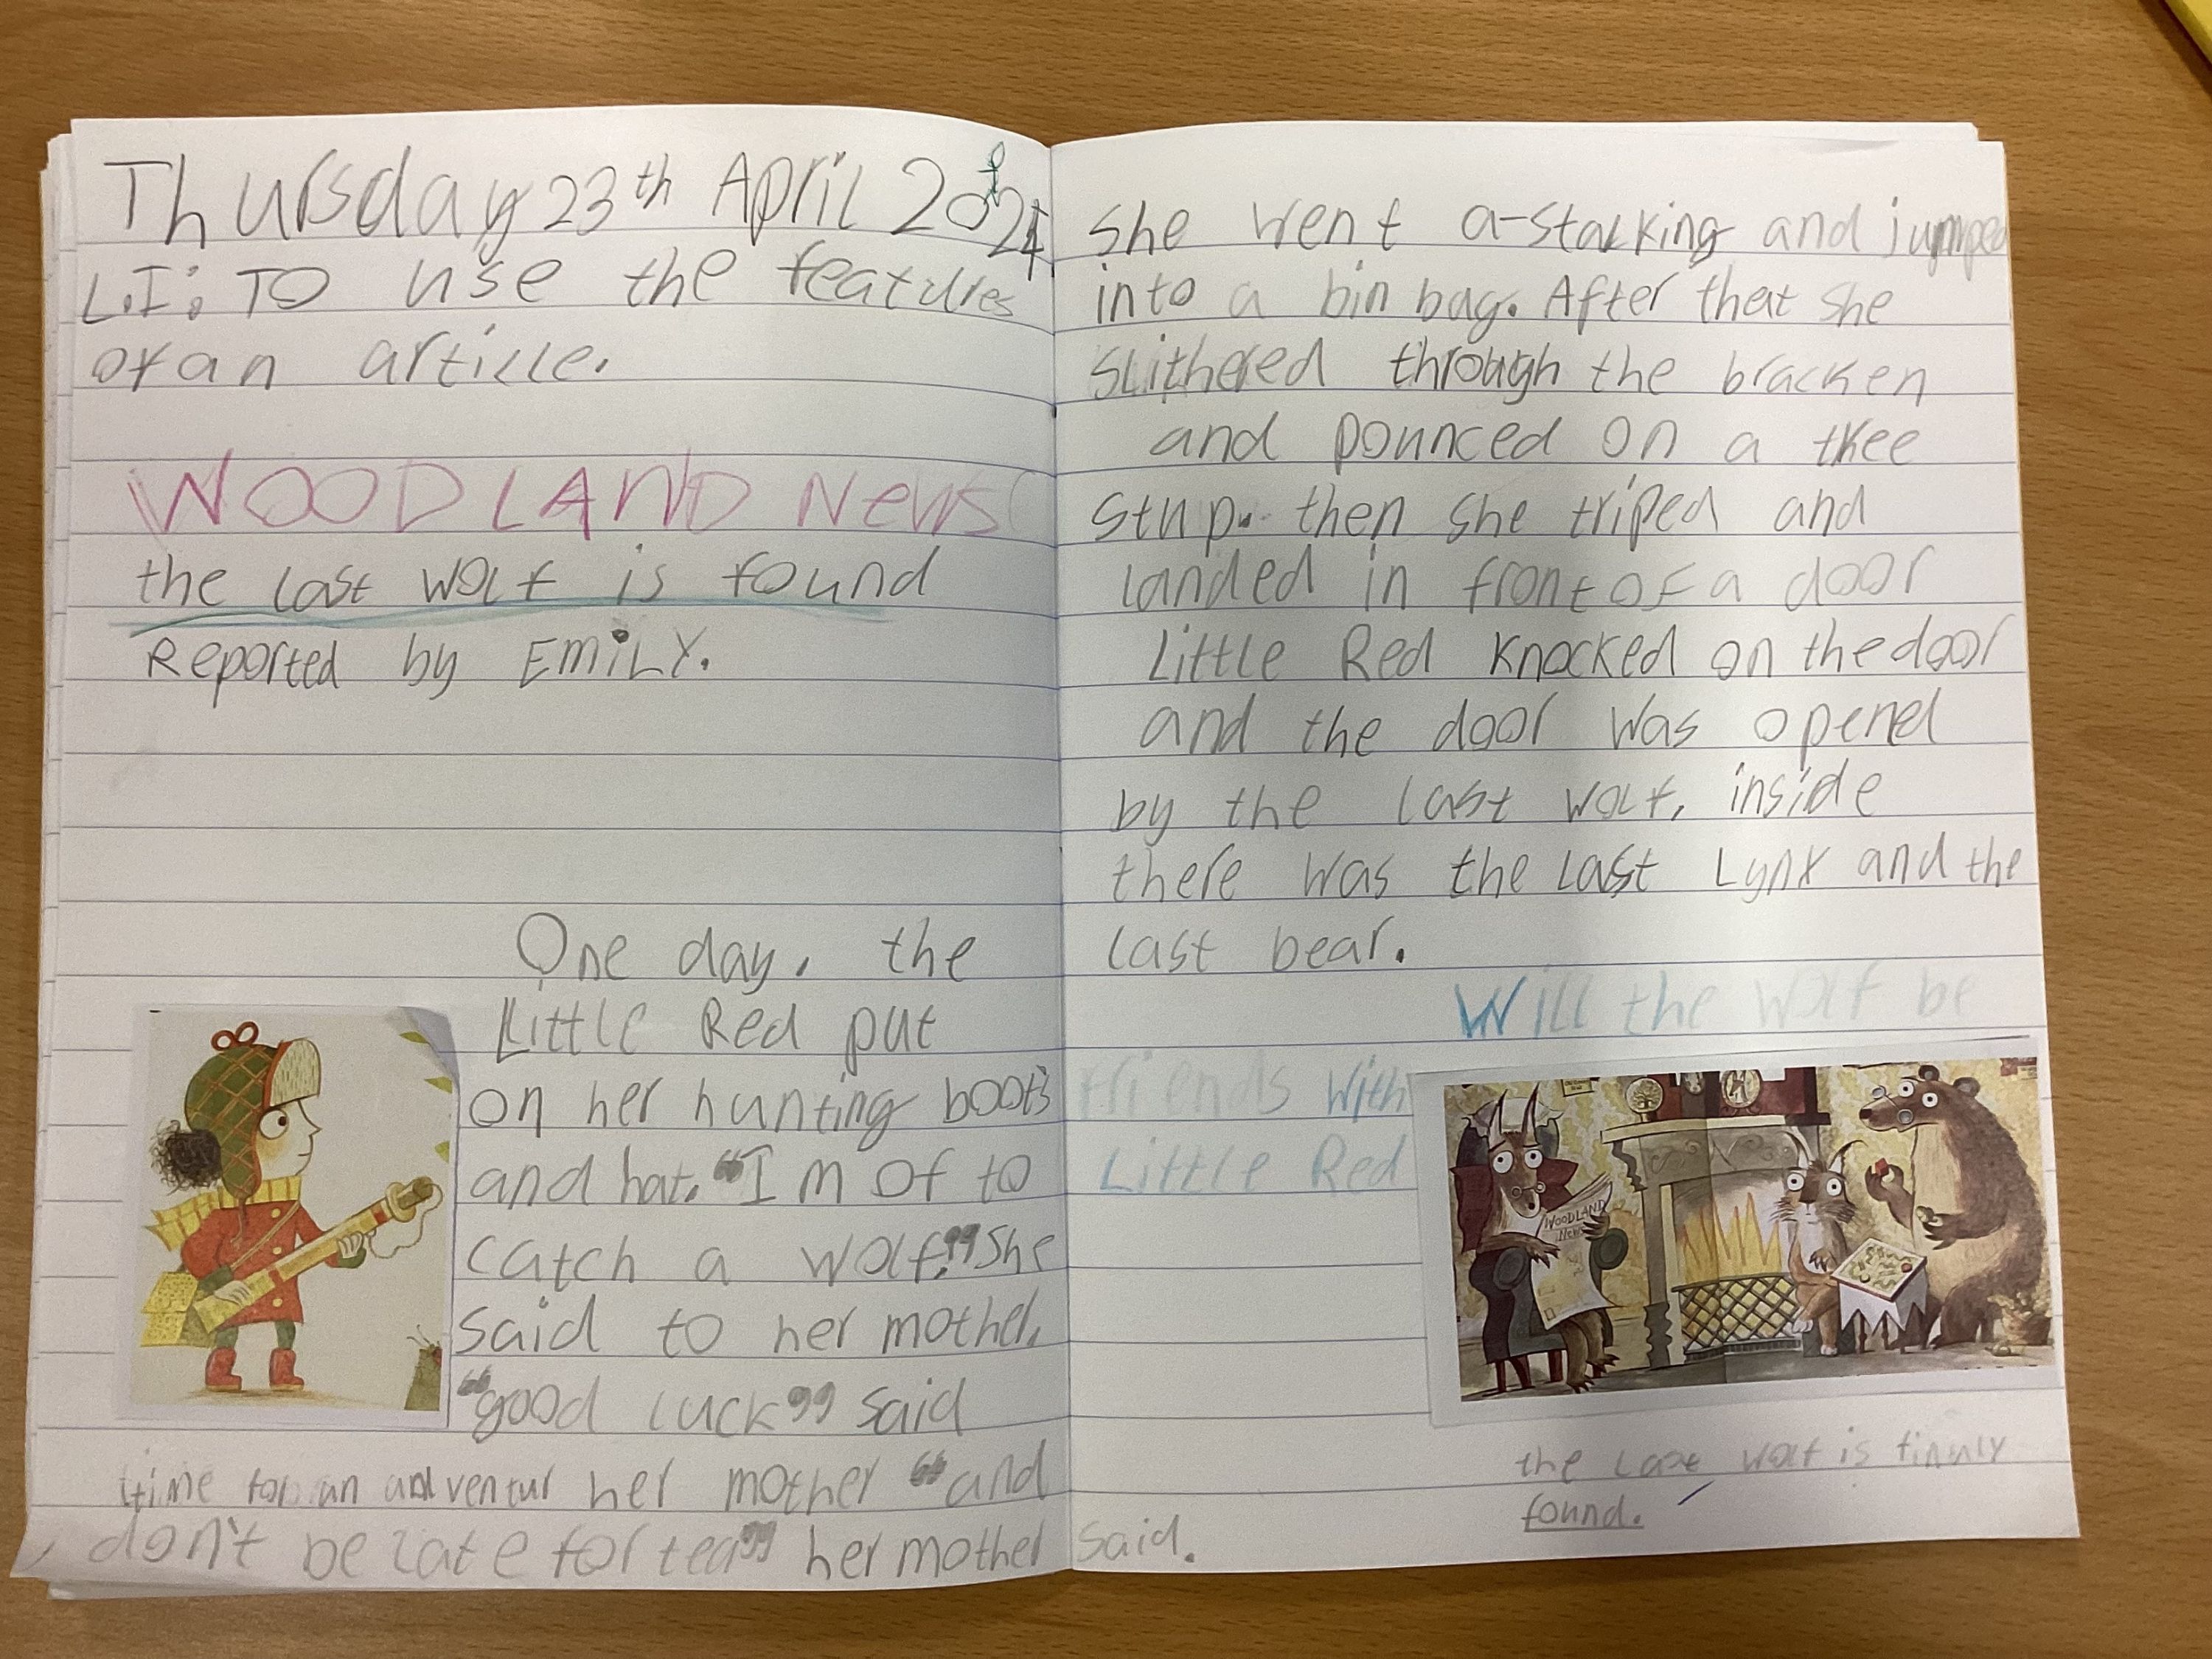 Thursday 23th April 2024
L.I: To use the features
of an article.
WOODLAND News
the last wolf is found
Reported by EmiLY.
One day, the
Little Red put
on her hunting boots
and hat. "I m of to
catch a wolf." She
said to her mother,
"good luck" said
her mother "and
don't be late for tea" her mother said.
time for an adventur
She went a-stalking and jumped
into a bin bag. After that she
slithered through the bracken
and pounced on a tree
stup. then she triped and
landed in front of a door
Little Red knocked on the door
and the door was opened
by the last wolf, inside
there was the last Lynx and the
last bear.
Will the wolf be
friends with
Little Red
WOODLAND
News
the last wolf is finnly
found.